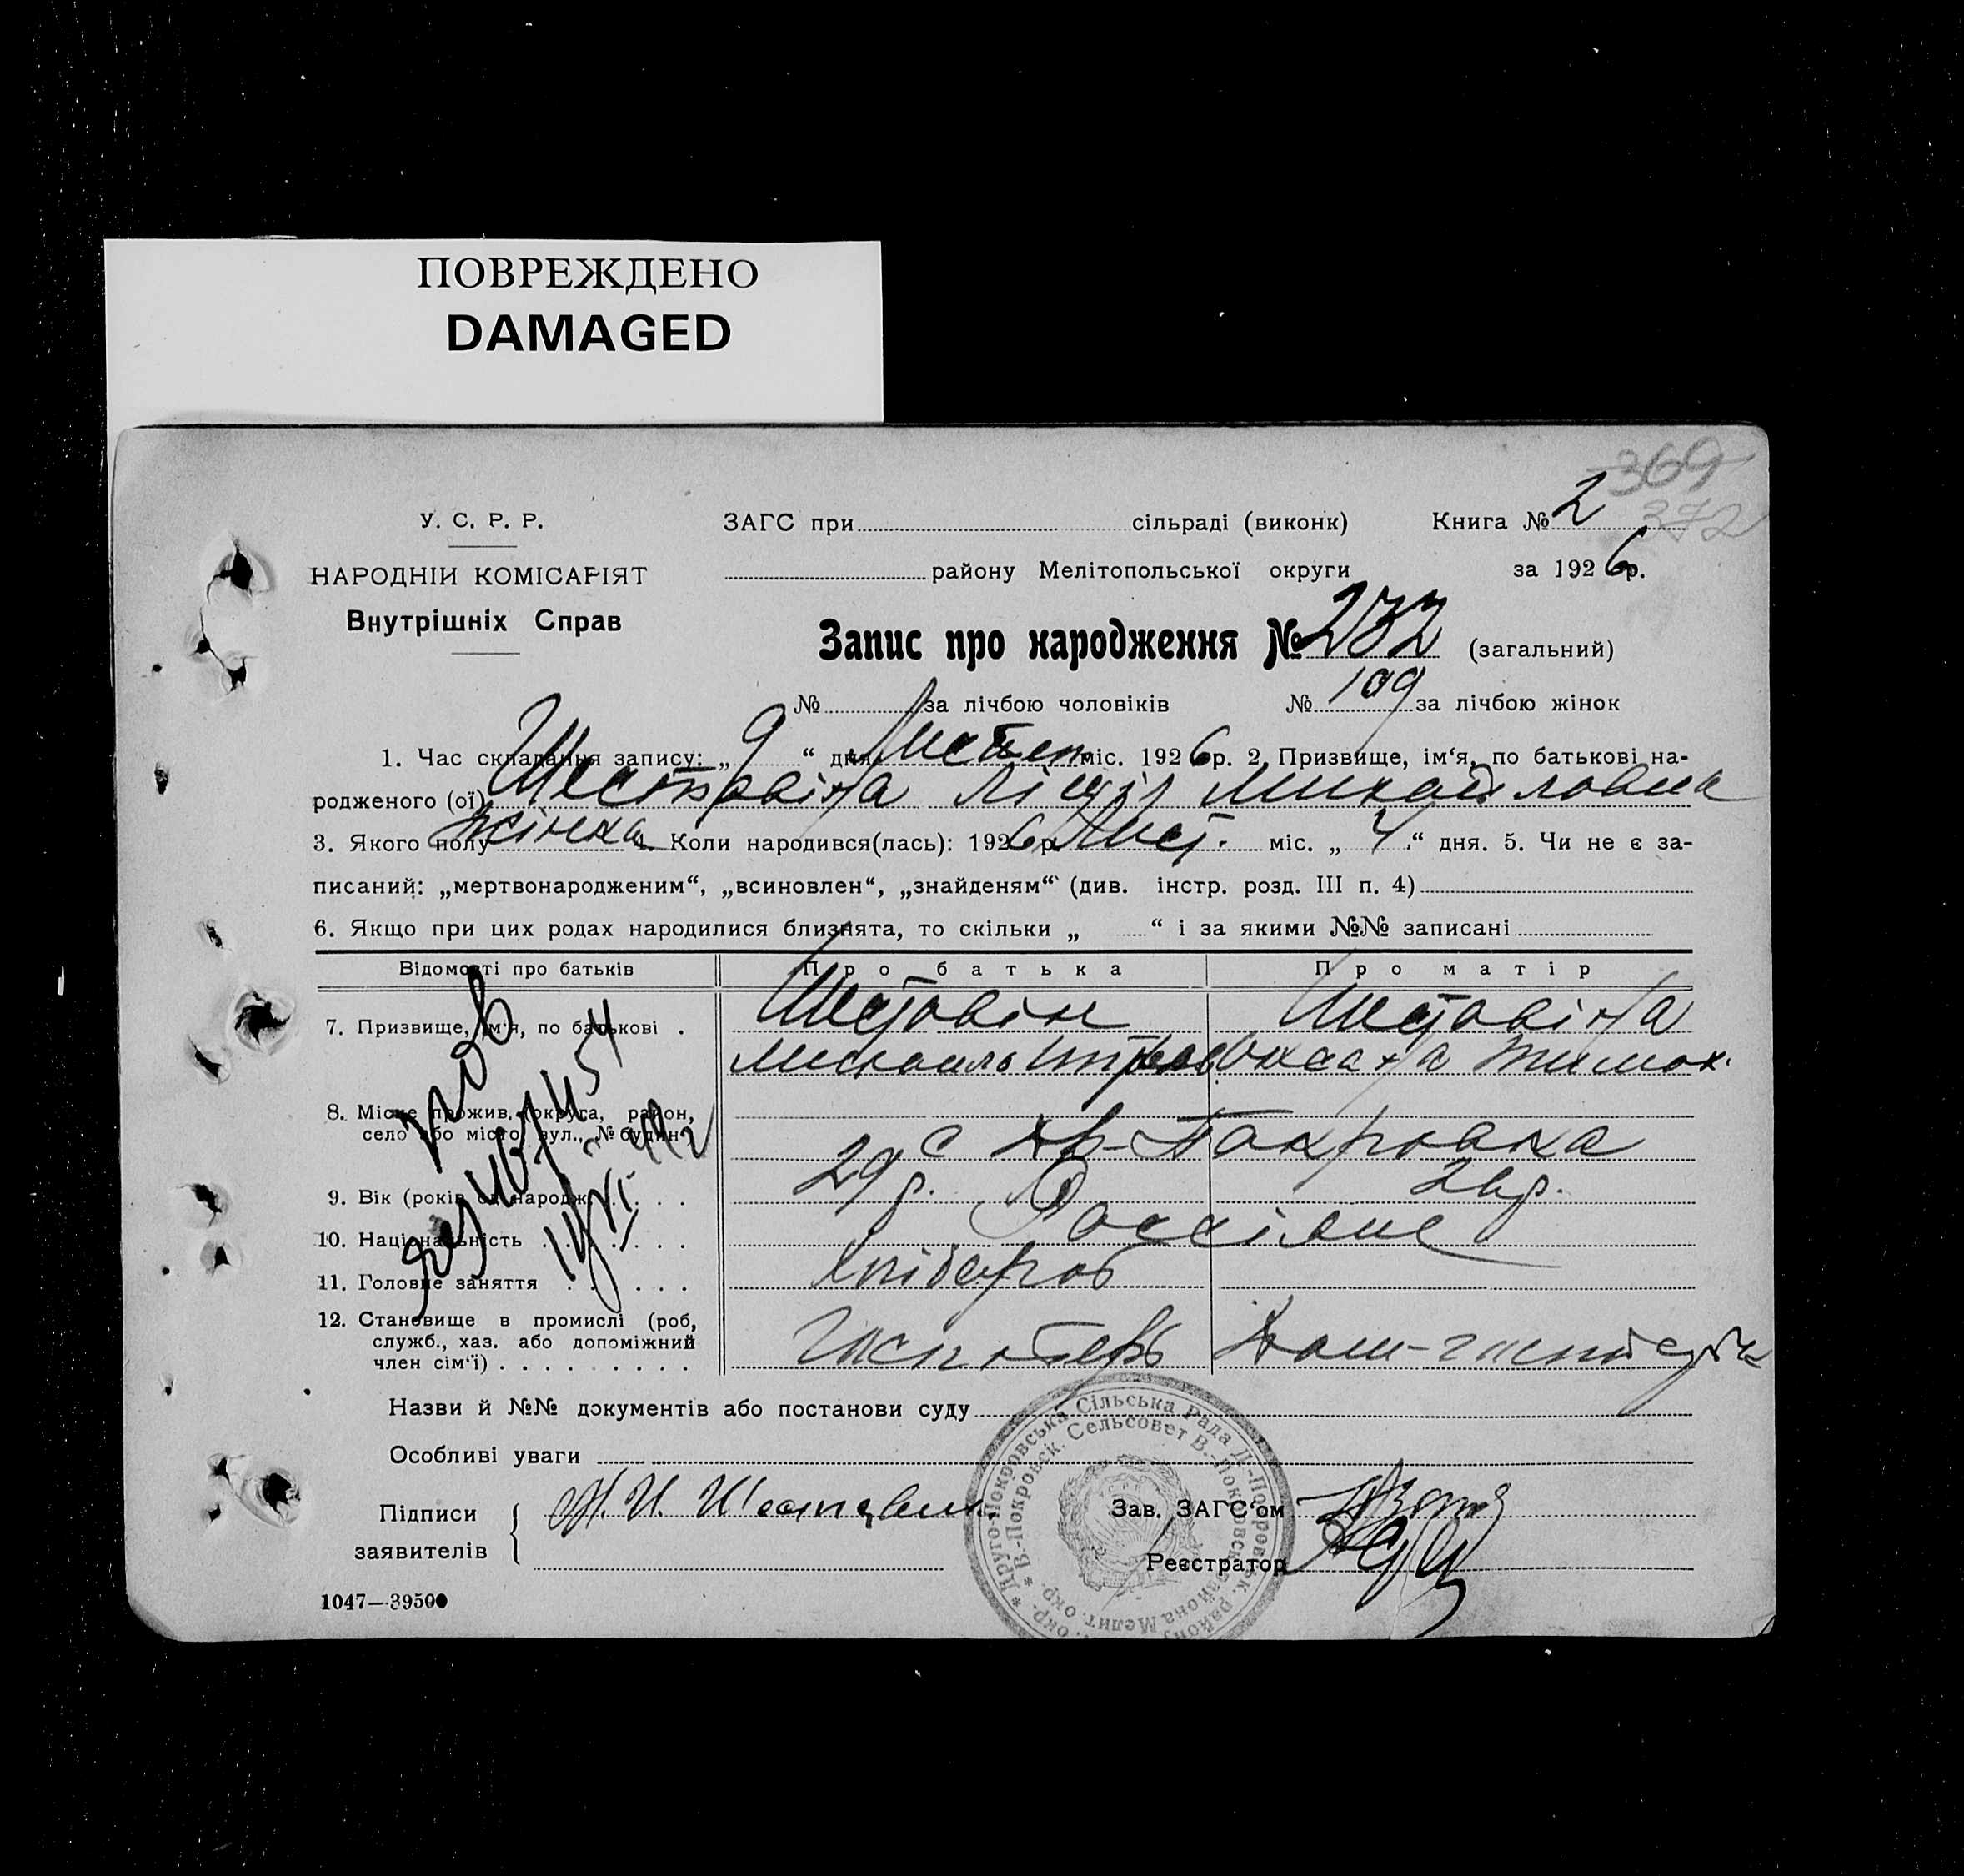 ПОВРЕЖДЕНО
DAMAGED
369
372
У. С. Р. Р.
НАРОДНІЙ КОМІСАРІЯТ
Внутрішніх Справ
ЗАГС при сільраді (виконк) Книга № 2
району Мелітопольської округи за 1926р.
Запис про народження № 232 (загальний)
№ за лічбою чоловіків № 109 за лічбою жінок
1. Час складання запису: „ 9 “ дня міс. 1926 р. 2. Призвище, ім‘я, по батькові на-
родженого (ої) Шестовіна Лідія Михайловна
3. Якого полу жінка 4. Коли народився(лась): 1926 р. Лист. міс. „ 4 “ дня. 5. Чи не є за-
писаний: „мертвонародженим“, „всиновлен“, „знайденям“ (див. інстр. розд. III п. 4)
6. Якщо при цих родах народилися близнята, то скільки „ “ і за якими №№ записані
Відомості про батьків Про батька Про матір
7. Призвище, ім‘я, по батькові . Шестовін Шестовіна
Оксана Тимох.
8. Місце прожив. (округа, район,
село або місто, вул., № будин. с Др-Покровка
9. Вік (років од народж. 29 р. 26 р.
10. Національність Россіяне
11. Головне заняття хлібороб
12. Становище в промислі (роб,
служб., хаз. або допоміжний
член сім‘ї)
Назви й №№ документів або постанови суду
Особливі уваги
Підписи
заявителів
Зав. ЗАГС‘ом
Реєстратор
Друго-Покровська Сільська Рада Д.-Покровськ. району
В.-Покровск. Сельсовет В.-Покровск. района Мелит. окр.
1047—39500